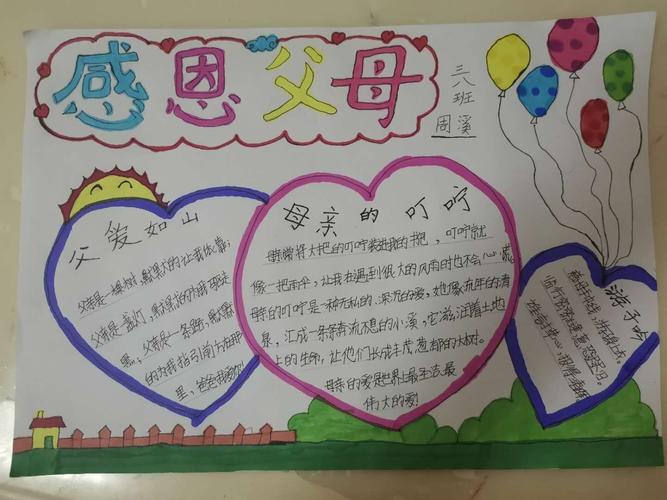 感恩父母
三八班
周溪
父爱如山
父亲是一棵树,默默的让我依靠,
父亲是一盏灯,默默的为我驱走
黑。父亲是一条路,默默
的为我指引前方在那
里,爸爸我爱你!
母亲的叮咛
母亲常将大把的叮咛装进我的书把,叮咛就
像一把雨伞,让我在遇到很大的风雨时也不会心慌
母亲的叮咛是一种无私的、深沉的爱,她像流年的清
泉,汇成一条条奔流不息的小溪,它滋润着土地
上的生命,让他们长成丰茂葱郁的大树。
母亲的爱是世界上最无法最
伟大的爱!
游子吟
慈母手中线,游子身上衣。
临行密密缝,意恐迟迟归。
谁言寸草心,报得三春晖